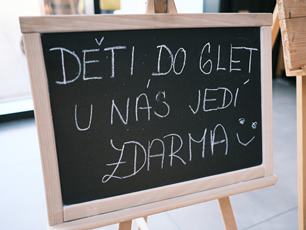 DĚTI DO 6LET
U NÁS JEDÍ
ZDARMA